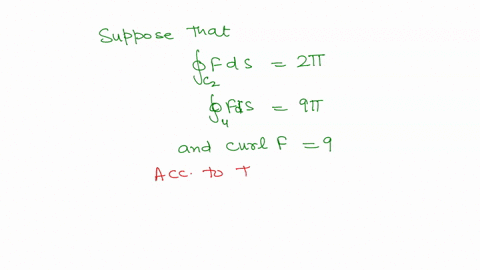 Suppose that
∮C₂ F ds = 2π
∮4 Fds = 9π
and curl F = 9
Acc. to T